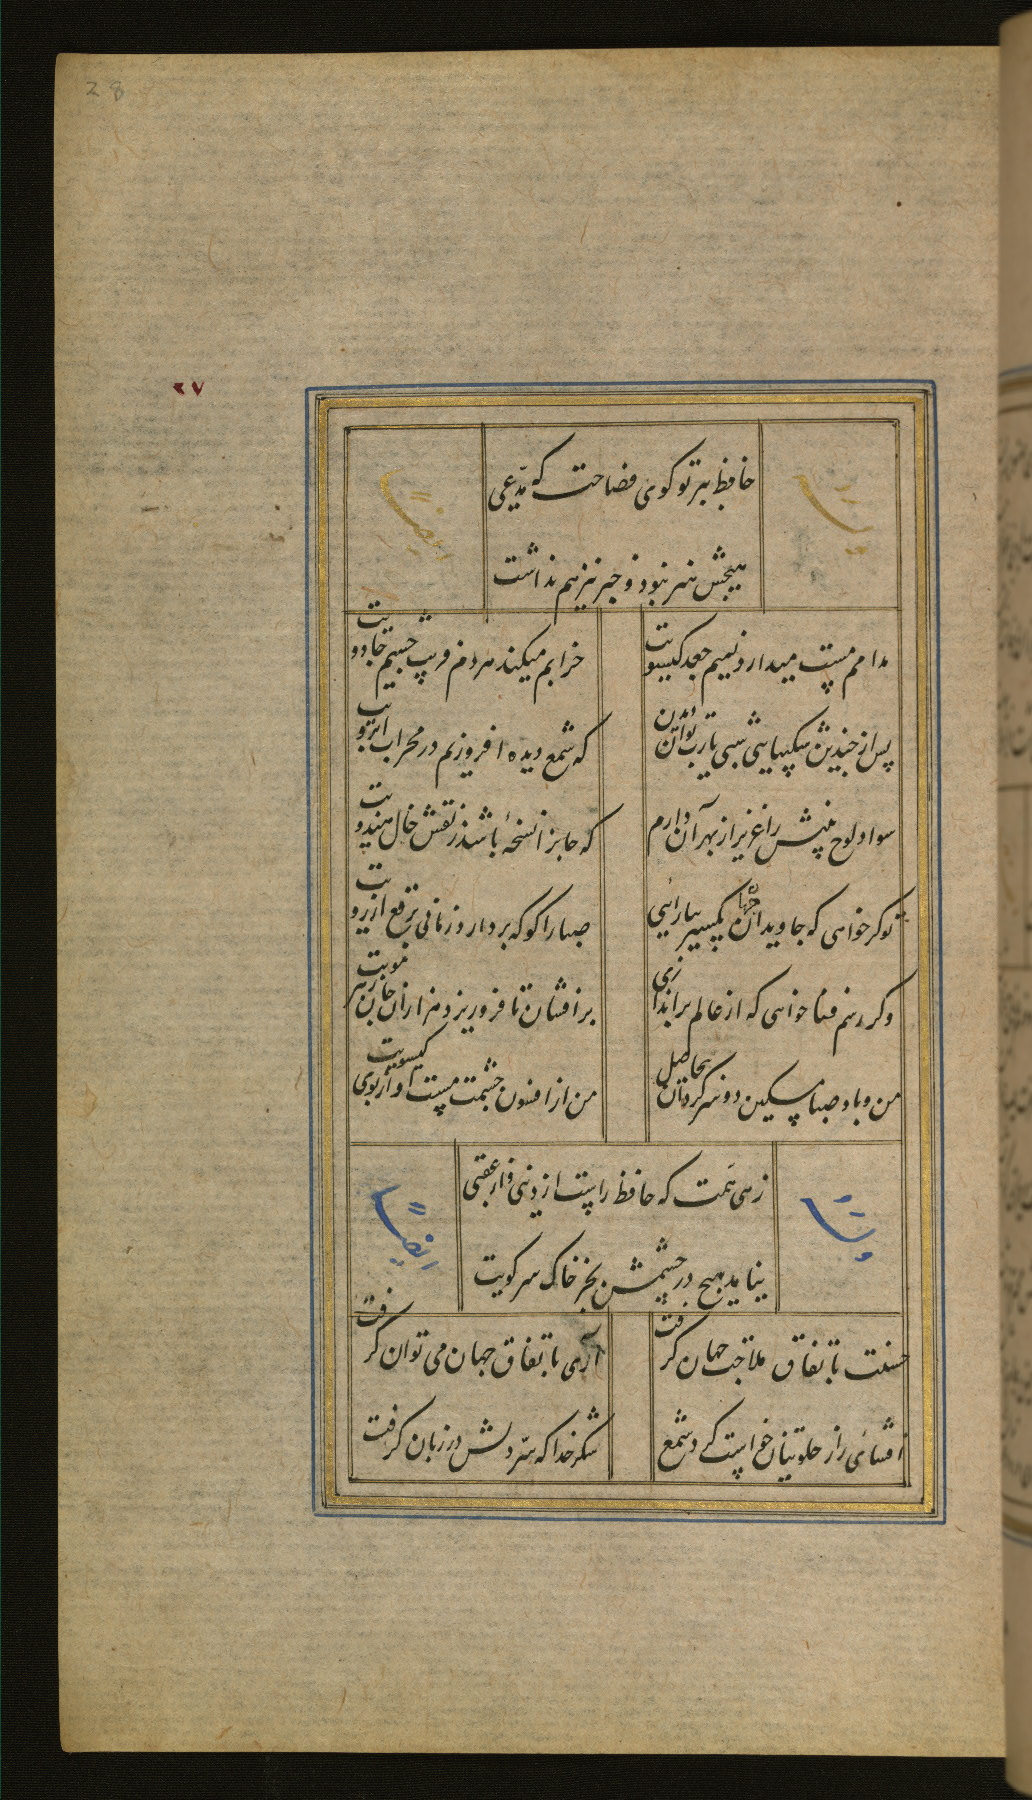 28
۲۷
حافظ ببر تو کوی فصاحت که مدّعی
وله
ایضاً
هیچش هنر نبود و خبر نیز هم نداشت
مدامم مست میدارد نسیم جعد کیسویت
خرابم میکند هر دم فریب چشم جادویت
پس از چندین شکیبایی شبی یارب توان دیدن
که شمع دیده افروزیم در محراب ابرویت
سواد لوح بینش را عزیز از بهر آن دارم
که جانرا نسخهٔ باشد ز نقش خال هندویت
تو کر خواهی که جاویدان جهان یکسر بیارایی
صبا را کو که بردارد زمانی برقع از رویت
وکر رسم فنا خواهی که از عالم براندازی
برافشان تا فرو ریزد هزاران جان ز هر مویت
من و باد صبا مسکین دو سرکردان بی حاصل
من از افسون چشمت مست او از بوی کیسویت
زهی همت که حافظ راست از دنیی و از عقبی
وله
ایضاً
نیاید هیچ در چشمش بجز خاک سر کویت
حسنت باتفاق ملاحت جهان کرفت
آری باتفاق جهان می توان کرفت
افشای راز خلوتیان خواست کرد شمع
شکر خدا که سرّ دلش در زبان کرفت